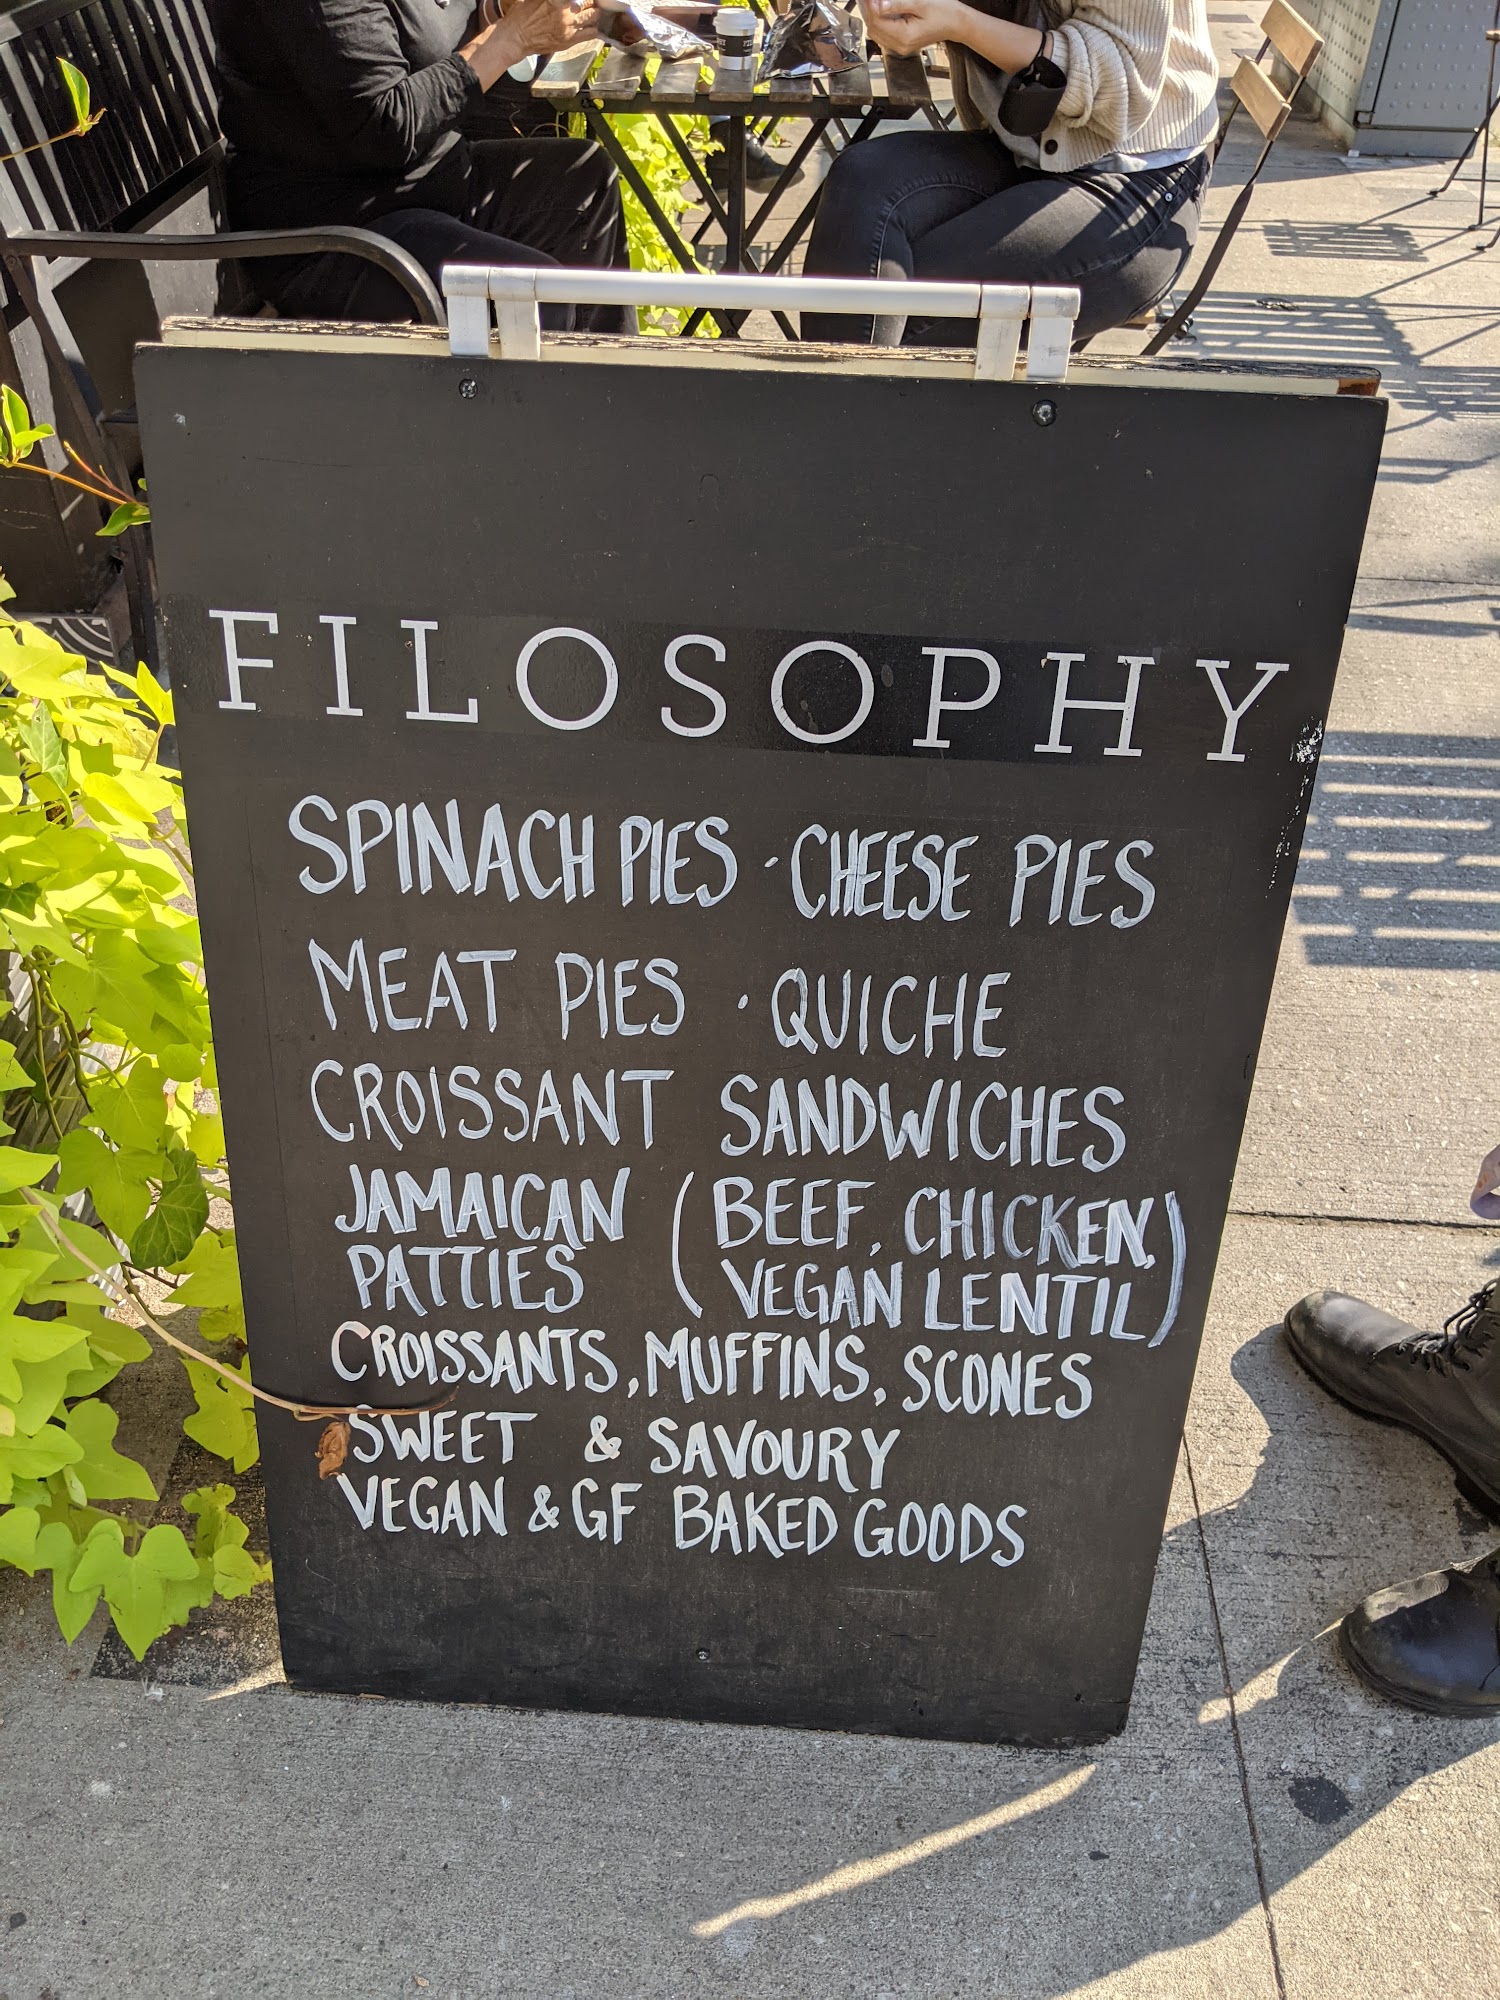 FILOSOPHY
SPINACH PIES · CHEESE PIES
MEAT PIES · QUICHE
CROISSANT SANDWICHES
JAMAICAN (BEEF, CHICKEN,
PATTIES VEGAN LENTIL)
CROISSANTS, MUFFINS, SCONES
SWEET & SAVOURY
VEGAN & GF BAKED GOODS